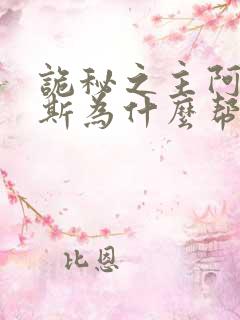 詭秘之主阿
斯為什麼幫
比恩